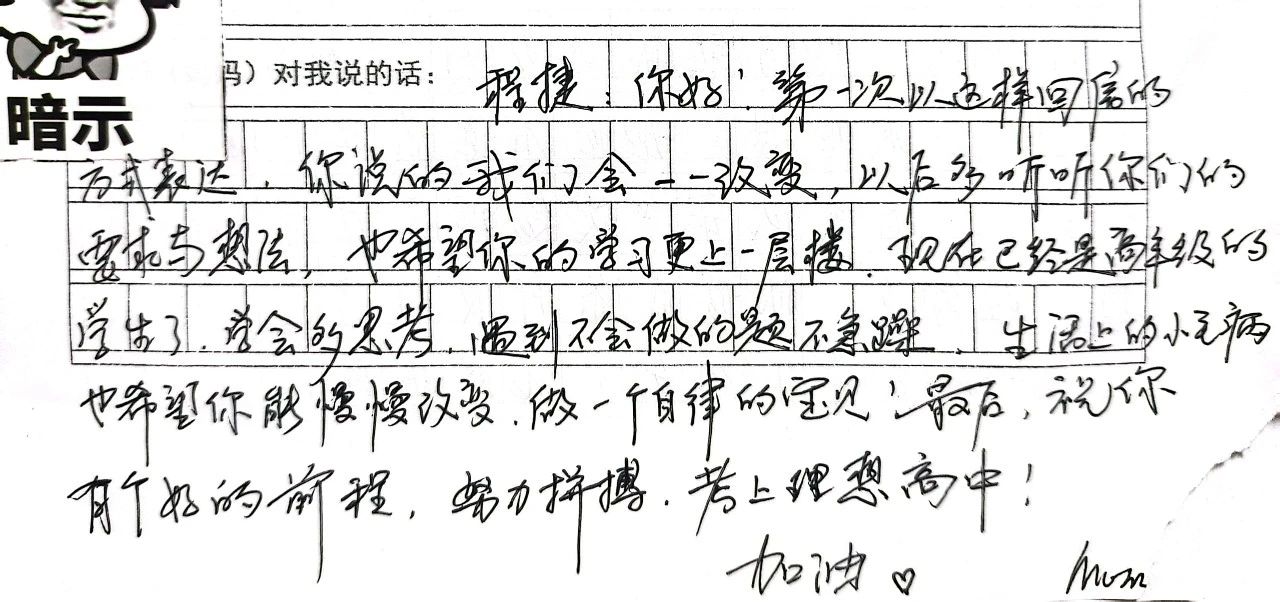 暗示
妈）对我说的话：程捷：你好！第一次以这样回信的
方式表达，你说的我们会一一改变，以后多听听你们的
要求与想法，也希望你的学习更上一层楼．现在已经是高年级的
学生了．学会多思考，遇到不会做的题不急躁．生活上的小毛病
也希望你能慢慢改变．做一个自律的宝贝！最后，祝你
有个好的前程，努力拼搏．考上理想高中！
加油♡ Mum